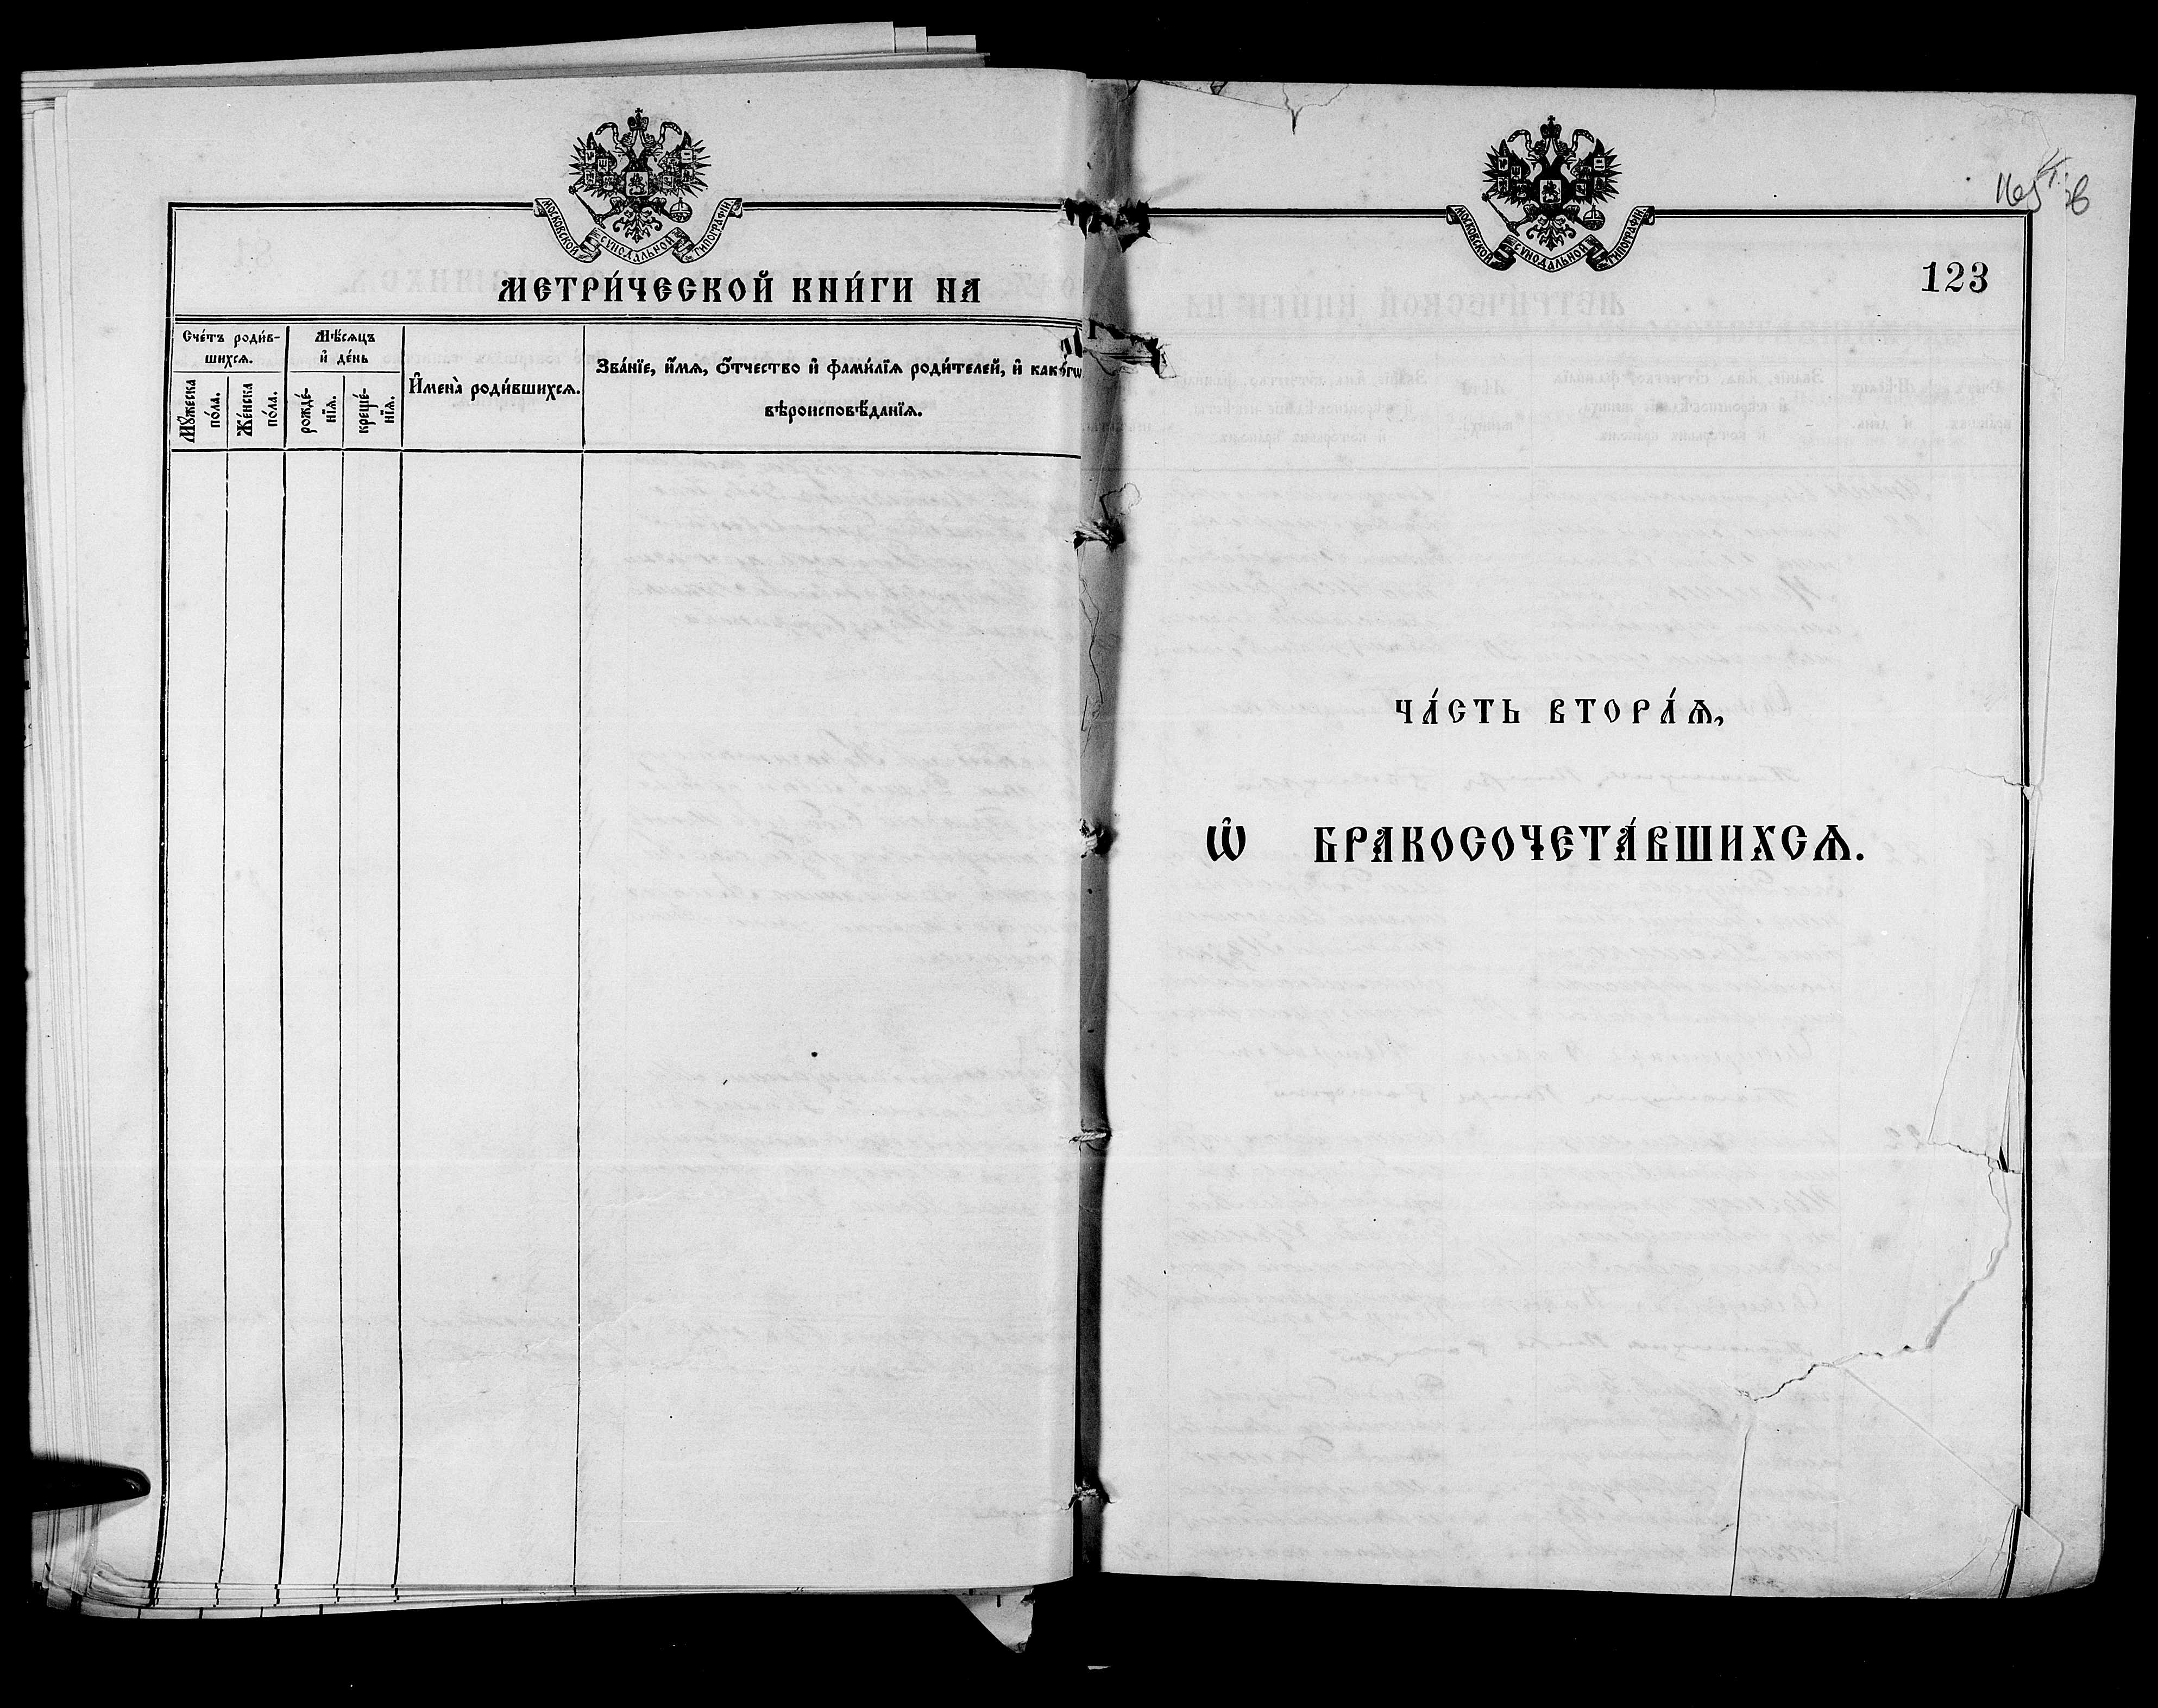 МОСКОВСКОЙ СѴНОДАЛЬНОЙ ТИПОГРАФІИ
МЕТРИ́ЧЕСКОЙ КНИ́ГИ НА
Сче́тъ роди́в-
шихсѧ.
Мѣ́сѧцъ
и҆ де́нь
И҆мена̀ роди́вшихсѧ.
Зва́нїе, и҆́мѧ, ѻ҆́тчество и҆ фами́лїѧ роди́телей, и҆ како́гѡ
вѣроисповѣ́данїѧ.
Мꙋ́жеска
по́ла.
Же́нска
по́ла.
рожде́-
нїѧ.
креще́-
нїѧ.
МОСКОВСКОЙ СѴНОДАЛЬНОЙ ТИПОГРАФІИ
123
ЧА́СТЬ ВТОРА́Ѧ,
Ѡ҆ БРАКОСОЧЕТА́ВШИХСѦ.